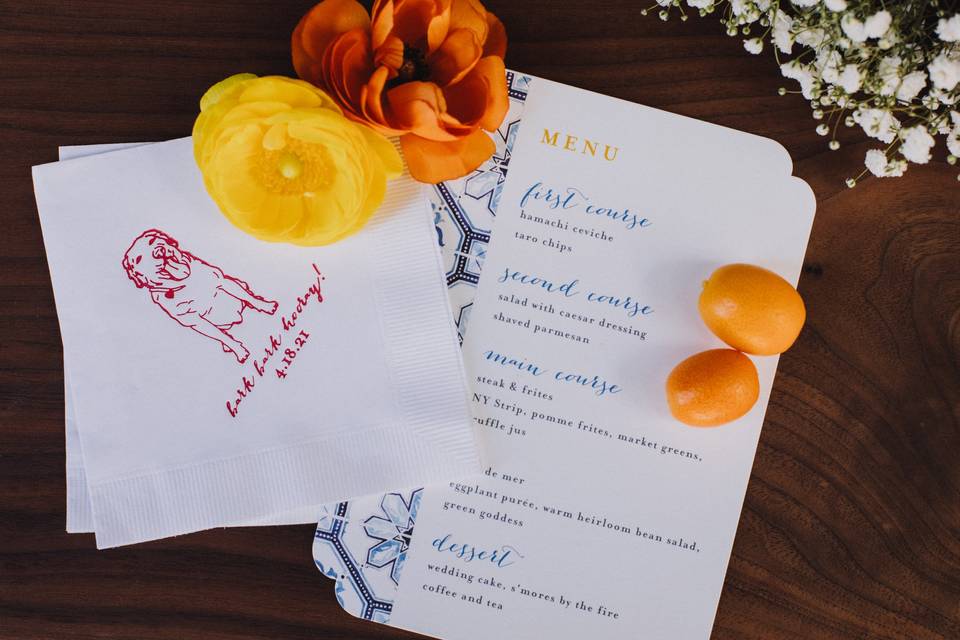 bark bark hooray!
4.18.21
MENU
first course
hamachi ceviche
taro chips
second course
salad with caesar dressing
shaved parmesan
main course
steak & frites
NY Strip, pomme frites, market greens,
jus
de mer
eggplant purée, warm heirloom bean salad,
green goddess
dessert
wedding cake, s'mores by the fire
coffee and tea